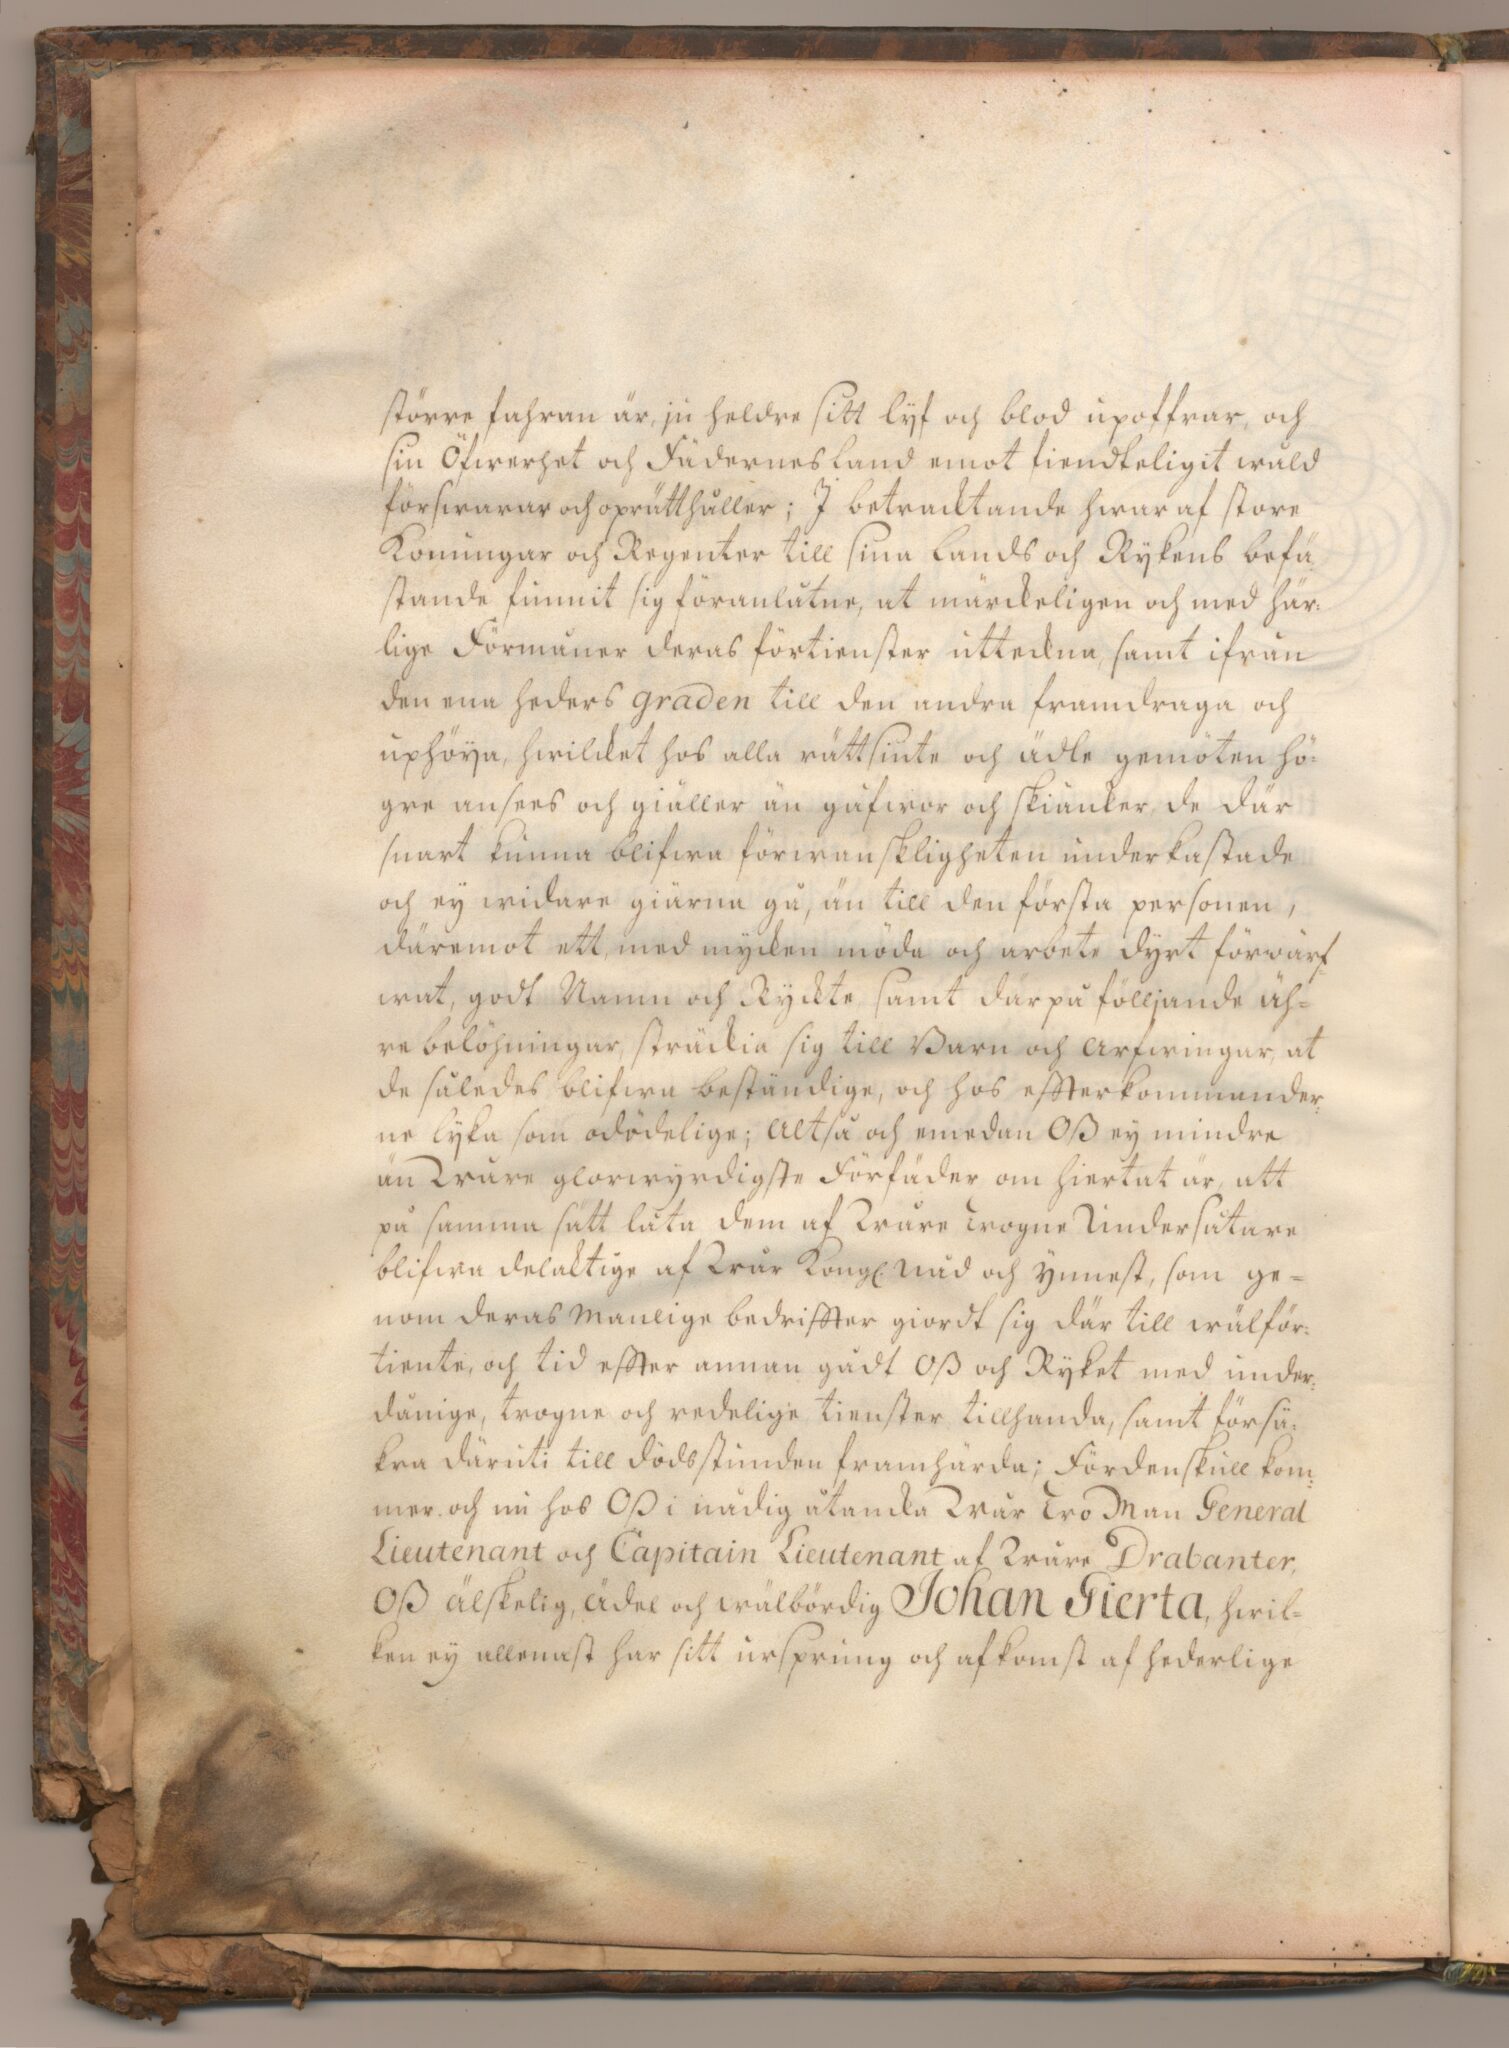 större fahran är, ju heldre sitt lÿf och blod upoffrar, och
sin Öfwerhet och Fädernesland emot fiendteligit wåld
förswarar och oprätthåller; I betracktande hwar af store
Konungar och Regenter till sina Lands och Rÿkens befä
stande funnit sig föranlåtne, at märckeligen och med här:
lige Förmåner deras förtienster uttekna, samt ifrån
den ena heders graden till den andra framdraga och
uphöÿa, hwilcket hos alla rättsinte och ädle gemöten hö-
gre ansees och giäller än gåfwor och skiänker, de där
snart kunna blifwa förwanskligheten underkastade
och eÿ widare giärna gå, än till den första personen,
däremot ett, med mÿcken möda och arbete dÿrt förwärf-
wat, godt Namn och Rÿckte samt där på fölljande äh-
re belöhningar, sträckia sig till Barn och Arfwingar, at
de således blifwa beständige, och hos effterkommander-
ne lÿka som odödelige; Altså och emedan Oß eÿ mindre
än Wåre glorwÿrdigste Förfäder om hiertat är, att
på samma sätt låta dem af Wåre trogne Undersåtare
blifwa delaktige af Wår Kongl. Nåd och ÿnnest, som ge-
nom deras Manlige bedriffter giordt sig där till wälför-
tiente, och tid effter annan gådt Oß och Rÿket med under-
dånige, trogne och redelige tienster tillhanda, samt försä-
kra däruti till dödsstunden framhärda; Fördenskull kom-
mer och nu hos Oß i nådig åtancka Wår Tro Man General
Lieutenant och Capitain Lieutenant af Wåre Drabanter,
Oß älskelig, Ädel och wälbördig Johan Gierta, hwil-
ken eÿ allenast har sitt ursprung och afkomst af hederlige